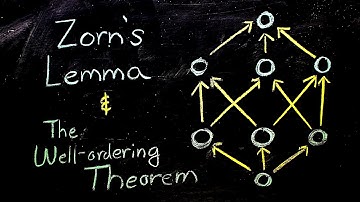 Zorn's
Lemma
&
The
Well-ordering
Theorem